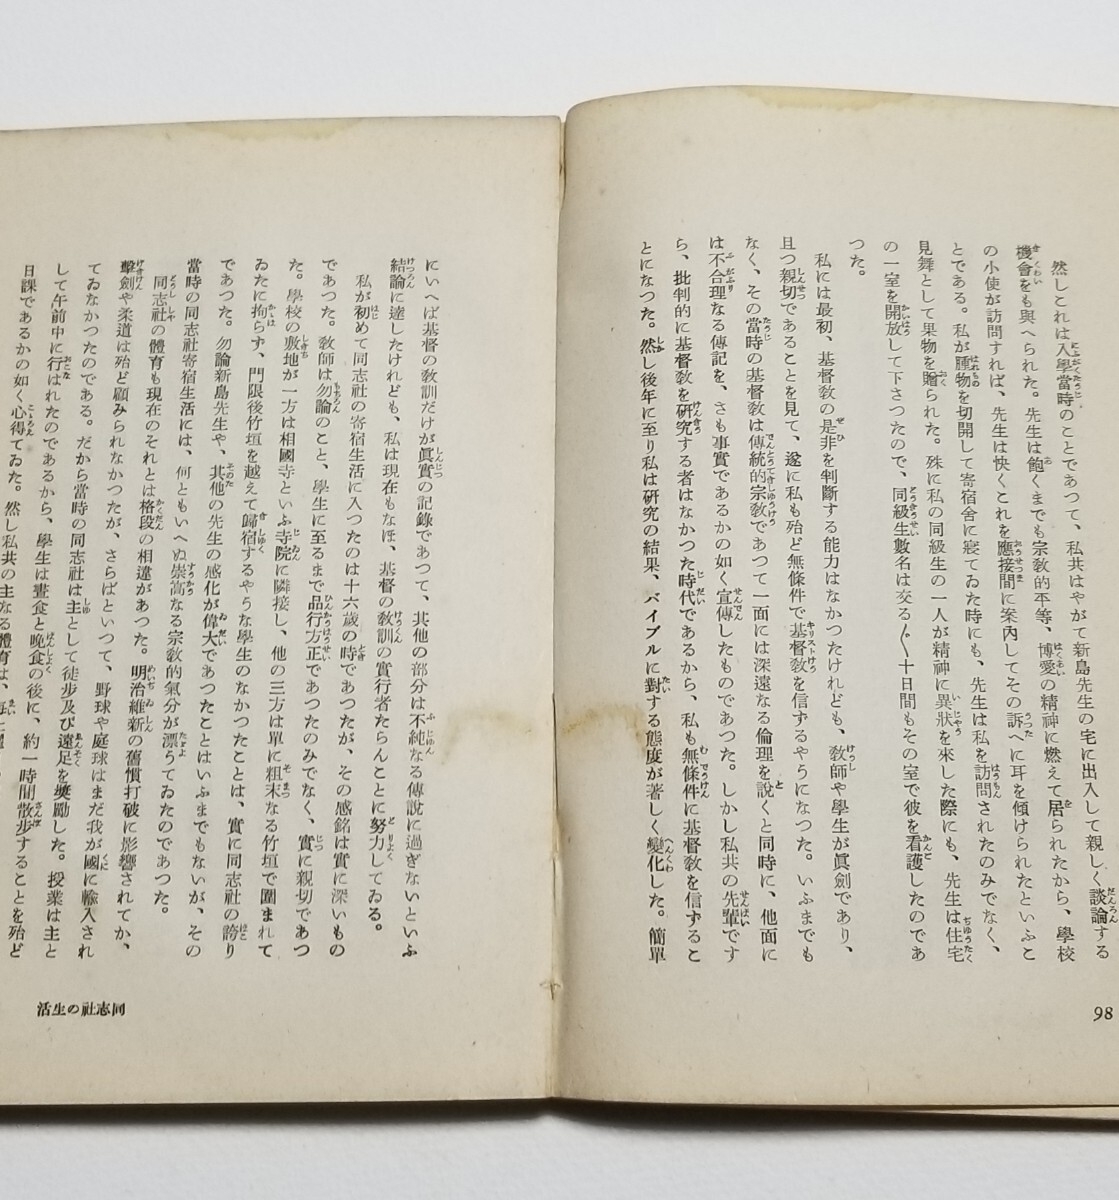 然しこれは入學當時のことであつて、私共はやがて新島先生の宅に出入して親しく談論する
機會をも與へられた。先生は飽くまでも宗敎的平等、博愛の精神に燃えて居られたから、學校
の小使が訪問すれば、先生は快くこれを應接間に案内してその訴へに耳を傾けられたといふこ
とである。私が腫物を切開して寄宿舍に寢てゐた時にも、先生は私を訪問されたのみでなく、
見舞として果物を贈られた。殊に私の同級生の一人が精神に異狀を來した際にも、先生は住宅
の一室を開放して下さつたので、同級生數名は交る〲十日間もその室で彼を看護したのであ
つた。
私には最初、基督敎の是非を判斷する能力はなかつたけれども、敎師や學生が眞劍であり、
且つ親切であることを見て、遂に私も殆ど無條件で基督敎を信ずるやうになつた。いふまでも
なく、その當時の基督敎は傳統的宗敎であつて一面には深遠なる倫理を說くと同時に、他面に
は不合理なる傳記を、さも事實であるかの如く宣傳したものであつた。しかし私共の先輩です
ら、批判的に基督敎を硏究する者はなかつた時代であるから、私も無條件に基督敎を信ずるこ
とになつた。然し後年に至り私は硏究の結果、バイブルに對する態度が著しく變化した。簡單
98
にいへば基督の敎訓だけが眞實の記錄であつて、其他の部分は不純なる傳說に過ぎないといふ
結論に達したけれども、私は現在もなほ、基督の敎訓の實行者たらんことに努力してゐる。
私が初めて同志社の寄宿生活に入つたのは十六歲の時であつたが、その感銘は實に深いもの
であつた。敎師は勿論のこと、學生に至るまで品行方正であつたのみでなく、實に親切であつ
た。學校の敷地が一方は相國寺といふ寺院に隣接し、他の三方は單に粗末なる竹垣で圍まれて
ゐたに拘らず、門限後竹垣を越えて歸宿するやうな學生のなかつたことは、實に同志社の誇り
であつた。勿論新島先生や、其他の先生の感化が偉大であつたことはいふまでもないが、その
當時の同志社寄宿生活には、何ともいへぬ崇高なる宗敎的氣分が漂うてゐたのであつた。
同志社の體育も現在のそれとは格段の相違があつた。明治維新の舊慣打破に影響されてか、
擊劍や柔道は殆ど顧みられなかつたが、さらばといつて、野球や庭球はまだ我が國に輸入され
てゐなかつたのである。だから當時の同志社は主として徒步及び遠足を奬勵した。授業は主と
して午前中に行はれたのであるから、學生は晝食と晚食の後に、約一時間散步することを殆ど
日課であるかの如く心得てゐた。然し私共の主なる體育は、
同志社の生活